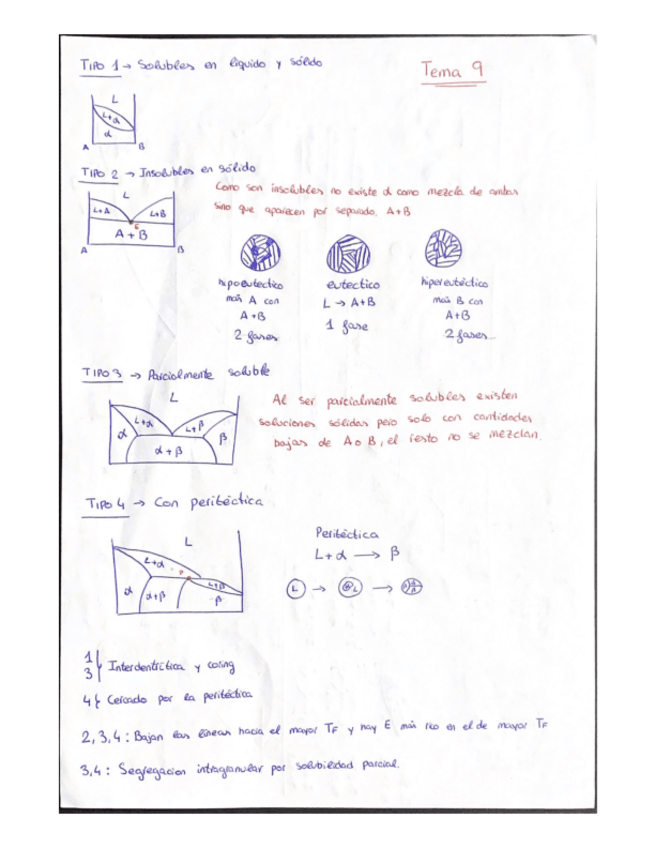 TIPO 1 → Solubles en líquido y sólido
Tema 9
L
L+α
α
A B
TIPO 2 → Insolubles en sólido
Como son insolubles no existe α como mezcla de ambas
sino que aparecen por separado. A+B
L
L+A L+B
E
A + B
A B
hipoeutectico
más A con
A+B
2 fases
eutectico
L → A+B
1 fase
hipereutéctico
más B con
A+B
2 fases
TIPO 3 → Parcialmente soluble
L
L+α L+β
α β
α + β
Al ser parcialmente solubles existen
soluciones sólidas pero solo con cantidades
bajas de A o B, el resto no se mezclan.
TIPO 4 → Con peritéctica
L
L+α
P
L+β
α α+β β
Peritéctica
L+α → β
L → α L →
1
3 } Interdentrítica y coring
4 } Cercado por la peritéctica
2, 3, 4 : Bajan las líneas hacia el mayor TF y hay E más rico en el de mayor TF
3,4 : Segregacion intragranular por solubilidad parcial.